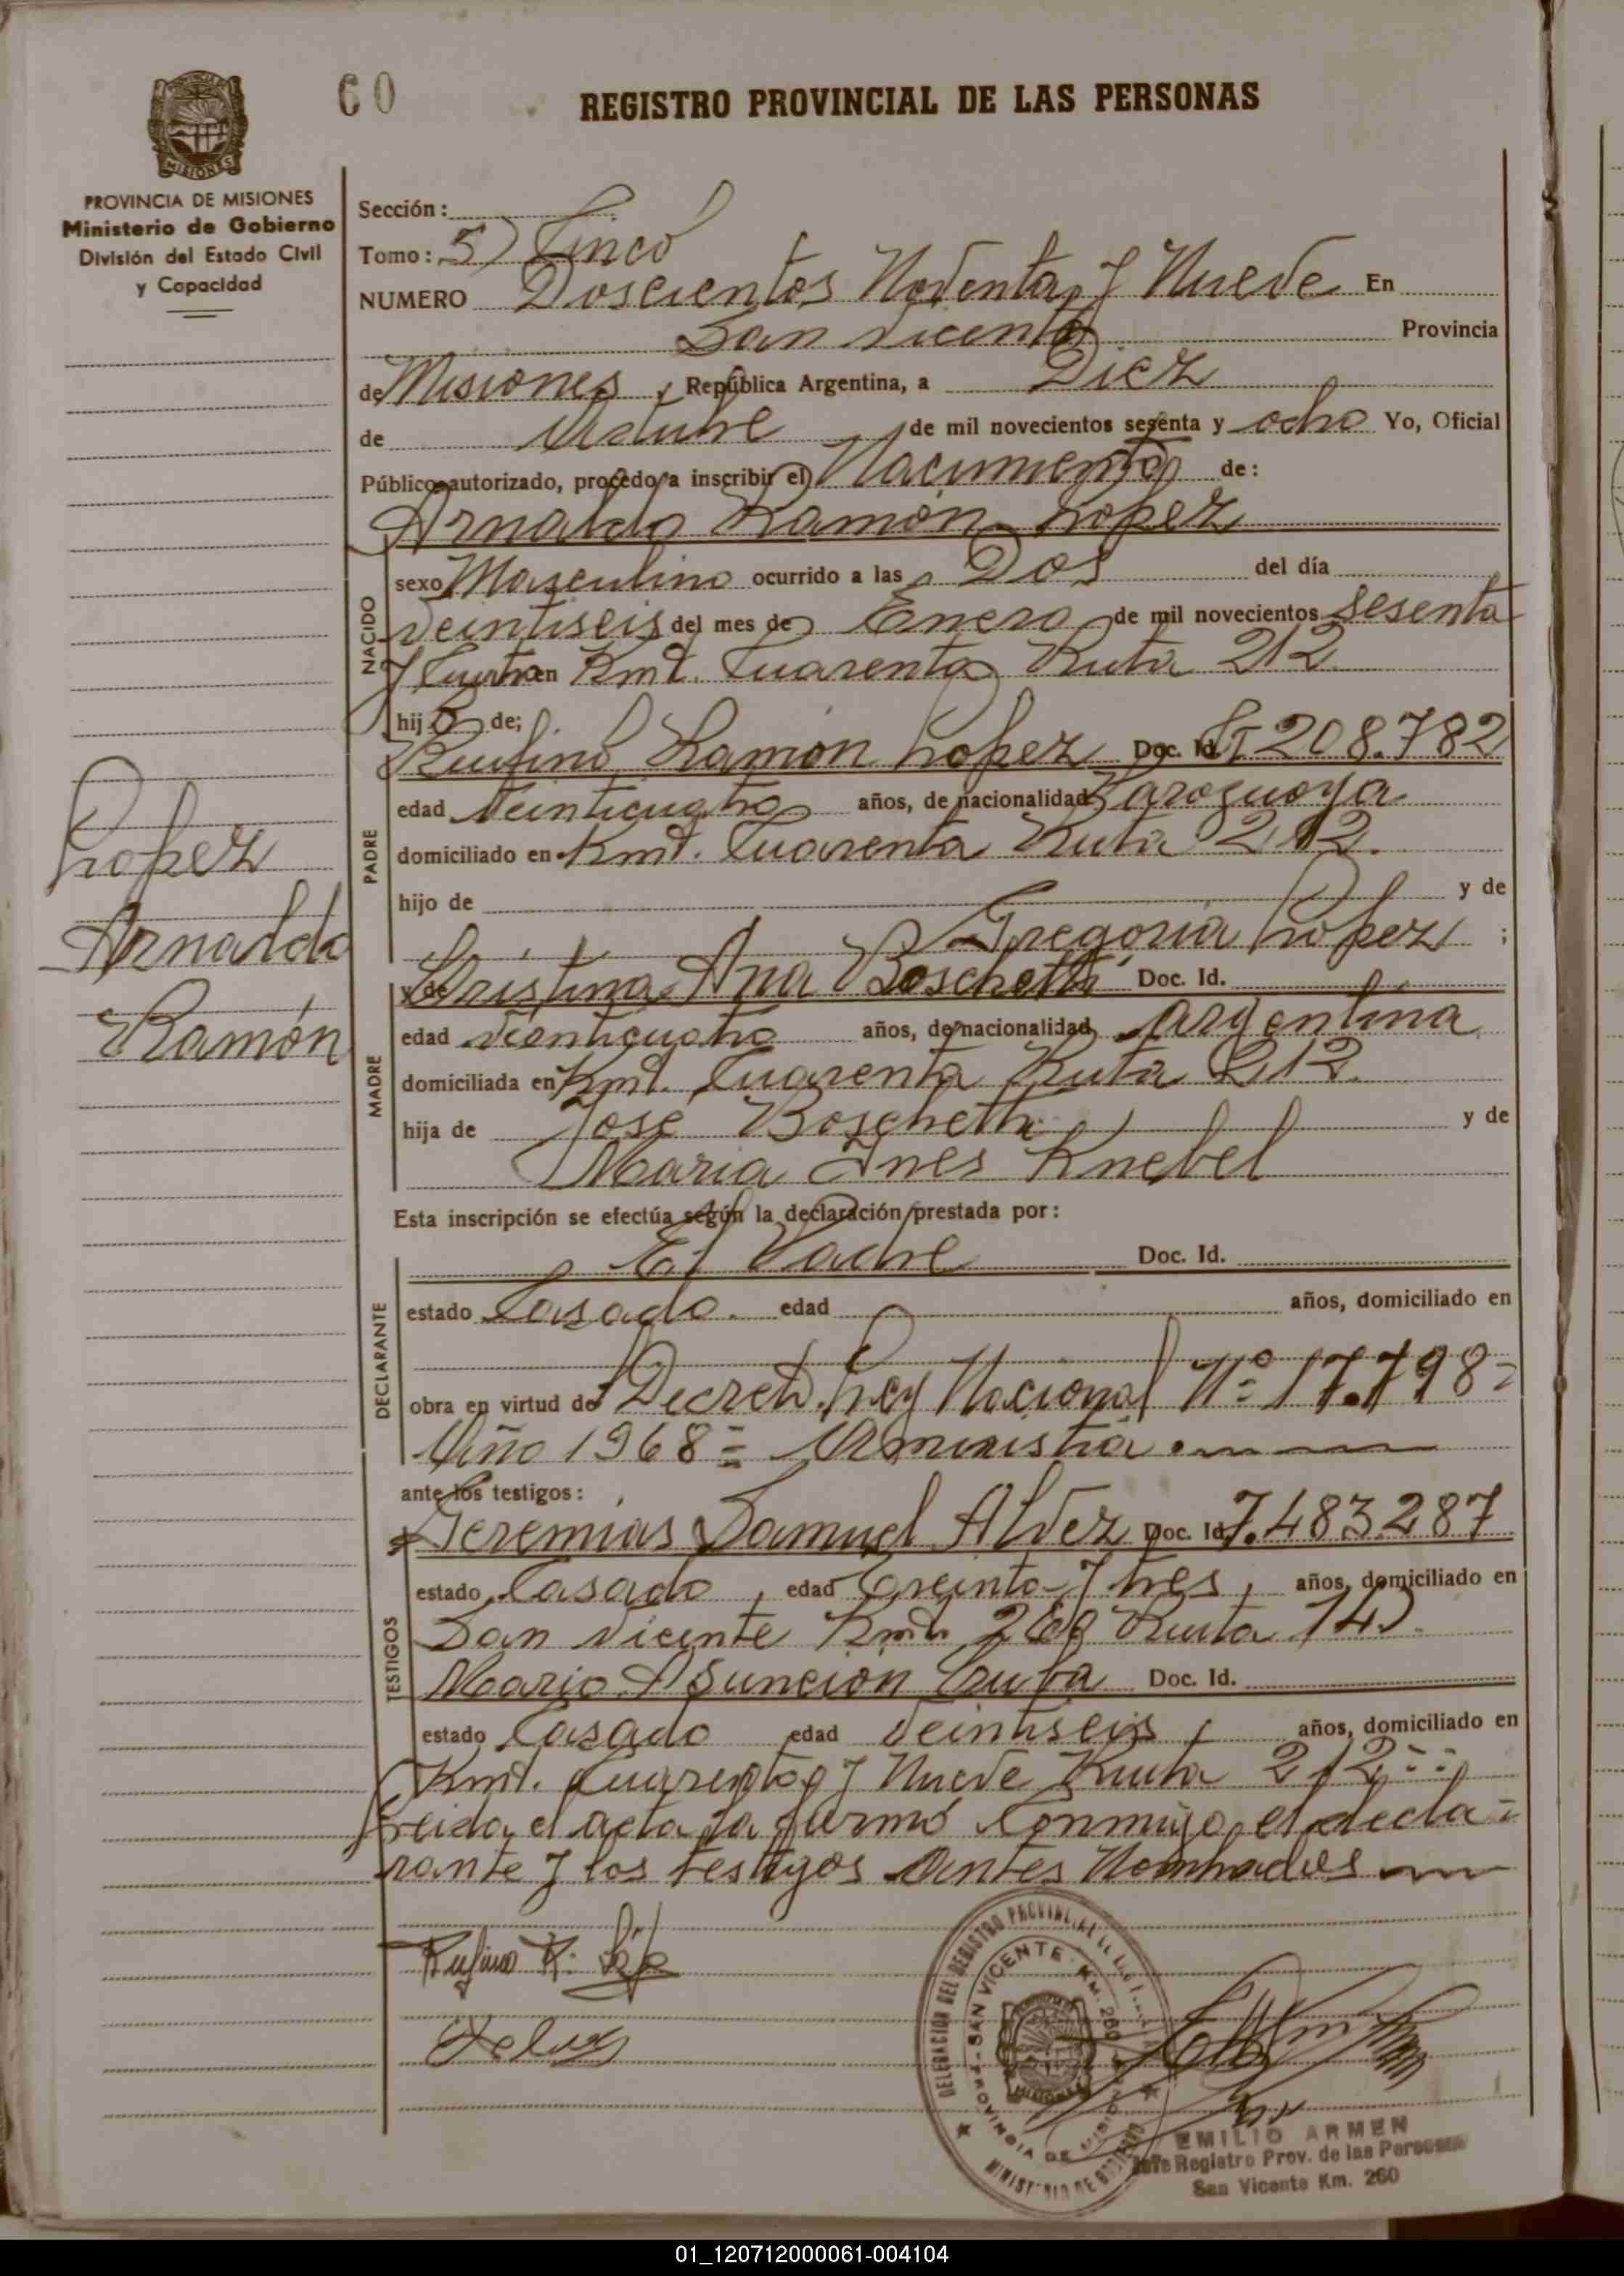 60
REGISTRO PROVINCIAL DE LAS PERSONAS
MISIONES
PROVINCIA DE MISIONES
Ministerio de Gobierno
División del Estado Civil
y Capacidad
Sección:
Tomo: 5) Cinco
NUMERO Doscientos Noventa y Nueve En
San Vicente Provincia
de Misiones, República Argentina, a Diez
de Octubre de mil novecientos sesenta y ocho Yo, Oficial
Público autorizado, procedo a inscribir el Nacimiento de:
Arnaldo Ramón Lopez
NACIDO
sexo Masculino ocurrido a las Dos del día
Veintiseis del mes de Enero de mil novecientos Sesenta
y Cuatro en Kmt. Cuarenta Ruta 212
hijo de;
Rufino Ramón Lopez Doc. Id. CI 208.782
PADRE
edad Veinticuatro años, de nacionalidad Paraguaya
domiciliado en Kmt. Cuarenta Ruta 212.
hijo de y de
Gregoria Lopez;
Lopez
Arnaldo
Ramón
y de Cristina Ana Boschetti Doc. Id.
MADRE
edad Veinticuatro años, de nacionalidad Argentina
domiciliada en Kmt. Cuarenta Ruta 212.
hija de José Boschetti y de
Maria Ines Knebel
Esta inscripción se efectúa según la declaración prestada por:
El Padre Doc. Id.
DECLARANTE
estado Casado. edad años, domiciliado en
obra en virtud de Decreto Ley Nacional Nº 17.798=
Año 1968=
ante los testigos:
Jeremias Samuel Alvez Doc. Id. 7.483.287
TESTIGOS
estado Casado, edad Treinta y tres, años, domiciliado en
San Vicente Kmt. Ruta 14)
Mario Asunción Doc. Id.
estado Casado edad Veintiseis, años, domiciliado en
Kmt. Cuarenta y Nueve Ruta 212
Leida el acta la firmó Conmigo el decla=
rante y los testigos Antes Nombrados
Rufino R. López
DELEGACION DEL REGISTRO PROVINCIAL DE LAS
SAN VICENTE KM. 260
PROVINCIA DE MISIONES
MISIONES
MINISTERIO DE GOBIERNO
EMILIO ARMEN
Jefe Registro Prov. de las Personas
San Vicente Km. 260
01_120712000061-004104